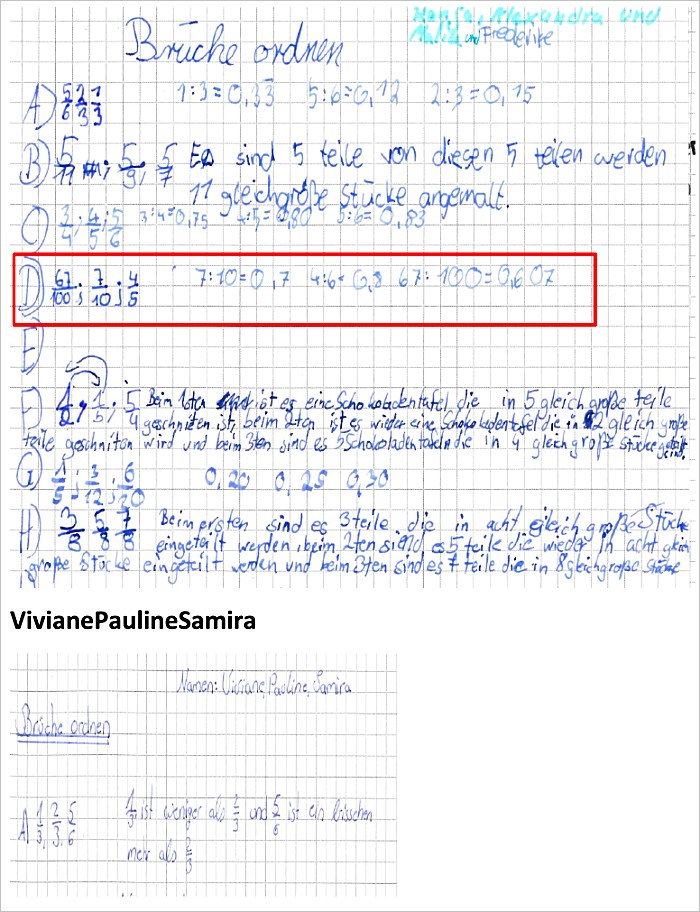 Alexandra und
Brüche ordnen und Frederike
A) 5/6 2/3 1/3 1:3=0,33 5:6=0,12 2:3=0,15
B) 5/11; 5/9; 5/7 Es sind 5 teile von diesen 5 teilen werden
11 gleichgroße Stücke angemalt.
C) 3/4; 4/5; 5/6 3:4=0,75 4:5=0,80 5:6=0,83
D) 67/100; 7/10; 4/5 7:10=0,7 67:100=0,607
E)
F) 1/2; 1/5; 5/4 Beim 1sten ist es eine Schokoladentafel die in 5 gleich große teile
geschnitten ist, beim 2ten ist es wieder eine Schokoladentafel die in 2 gleich große
teile geschniten wird und beim 3ten sind es 5 Schokoladentafeln die in 4 gleich große stücke
G) 1/5; 3/12; 6/20 0,20 0,25 0,30
H) 3/8 5/8 7/8 Beim ersten sind es 3 teile die in acht gleich große Stücke
eingeteilt werden, beim 2ten siend es 5 teile die wieder in acht gleich
große Stücke eingeteilt werden und beim 3ten sind es 7 teile die in 8 gleichgroße Stücke
VivianePaulineSamira
Namen: Viviane, Pauline, Samira
Brüche ordnen
A) 1/3, 2/3, 5/6 1/3 ist weniger als 2/3 und 5/6 ist ein bisschen
mehr als 2/3